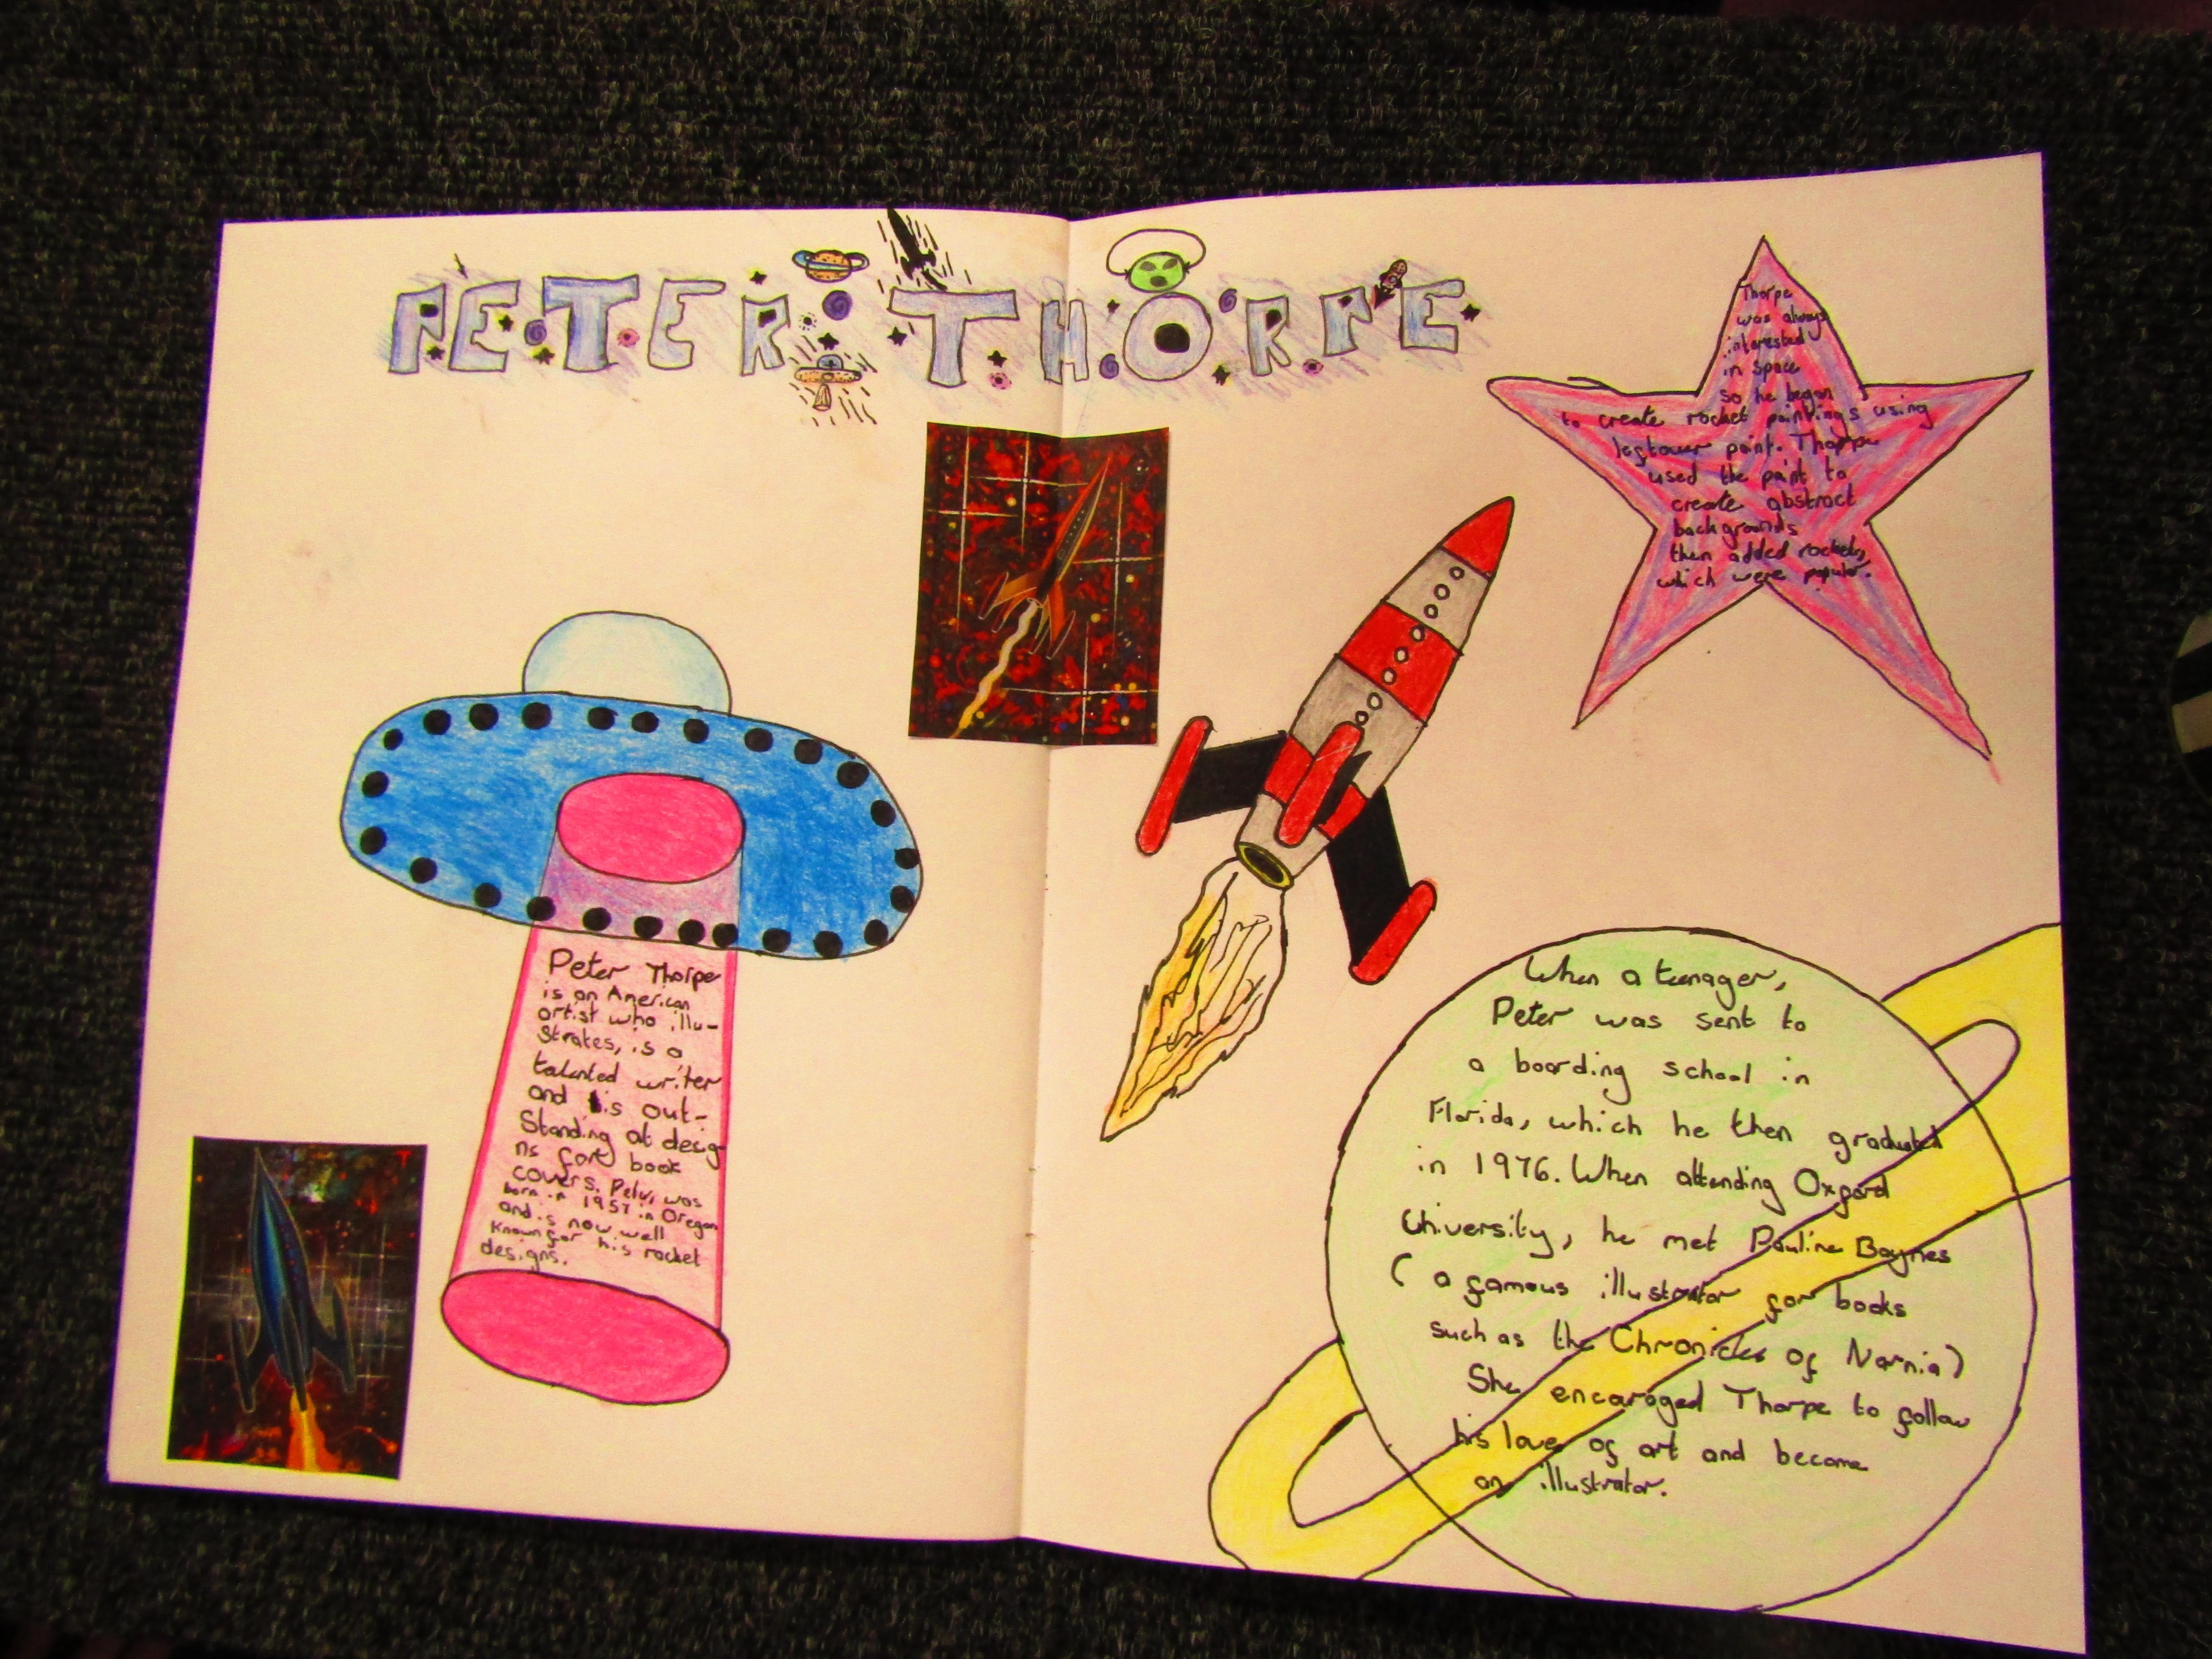 PETER THORPE
Thorpe
was always
interested
in space
so he began
to create rocket paintings using
leftover paint. Thorpe
used the paint to
create abstract
backgrounds
then added rockets,
which were popular.
Peter Thorpe
is an American
artist who illu-
strates, is a
talented writer
and is out-
standing at desig-
ns for book
covers. Peter was
born in 1957 in Oregon
and is now well
known for his rocket
designs.
When a teenager,
Peter was sent to
a boarding school in
Florida, which he then graduated
in 1976. When attending Oxford
University, he met Pauline Baynes
( a famous illustrator for books
such as the Chronicles of Narnia)
She encaroged Thorpe to follow
his love of art and become
an illustrator.